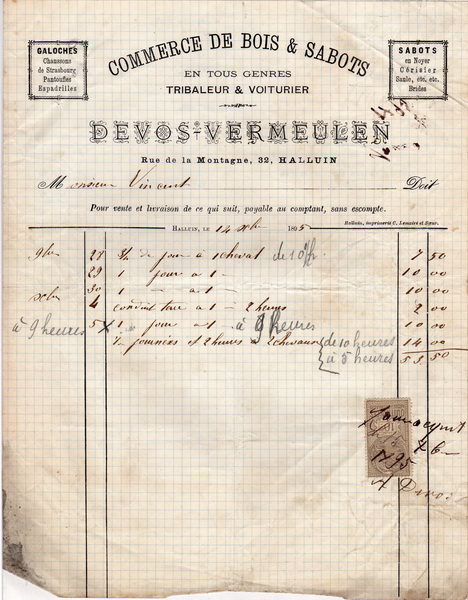 GALOCHES
Chaussons
de Strasbourg
Pantoufles
Espadrilles
COMMERCE DE BOIS & SABOTS
EN TOUS GENRES
TRIBALEUR & VOITURIER
SABOTS
en Noyer
Cérisier
Saule, etc, etc.
Brides
DEVOS-VERMEULEN
Rue de la Montagne, 32, HALLUIN
Monsieur Vincent Doit
Pour vente et livraison de ce qui suit, payable au comptant, sans escompte.
HALLUIN, LE 14 xbr 1895
Halluin, imprimerie C. Lemaire et Sœur.
9br 27 3/4 de jour a 1 cheval de 10 fr. 7 50
29 1 jour a 1 — 10 00
30 1 — a 1 — 10 00
xbr 4 conduit a 1 — 2 heures 2 00
à 9 heures 5 x 1 jour a 1 à 9 heures 10 00
journées et 2 heures a 2 chevaux de 10 heures 14 00
à 5 heures 53.50
1795
Devos